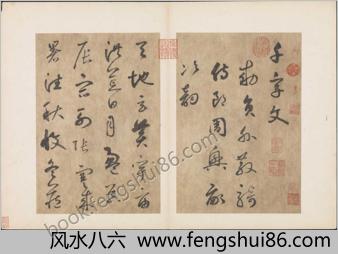 千字文
勅員外散騎
侍郎周興嗣
次韻
天地玄黃宇宙
洪荒日月盈昃
辰宿列張寒來
暑往秋收冬藏
bookfengshui86.com
风水八六 www.fengshui86.com